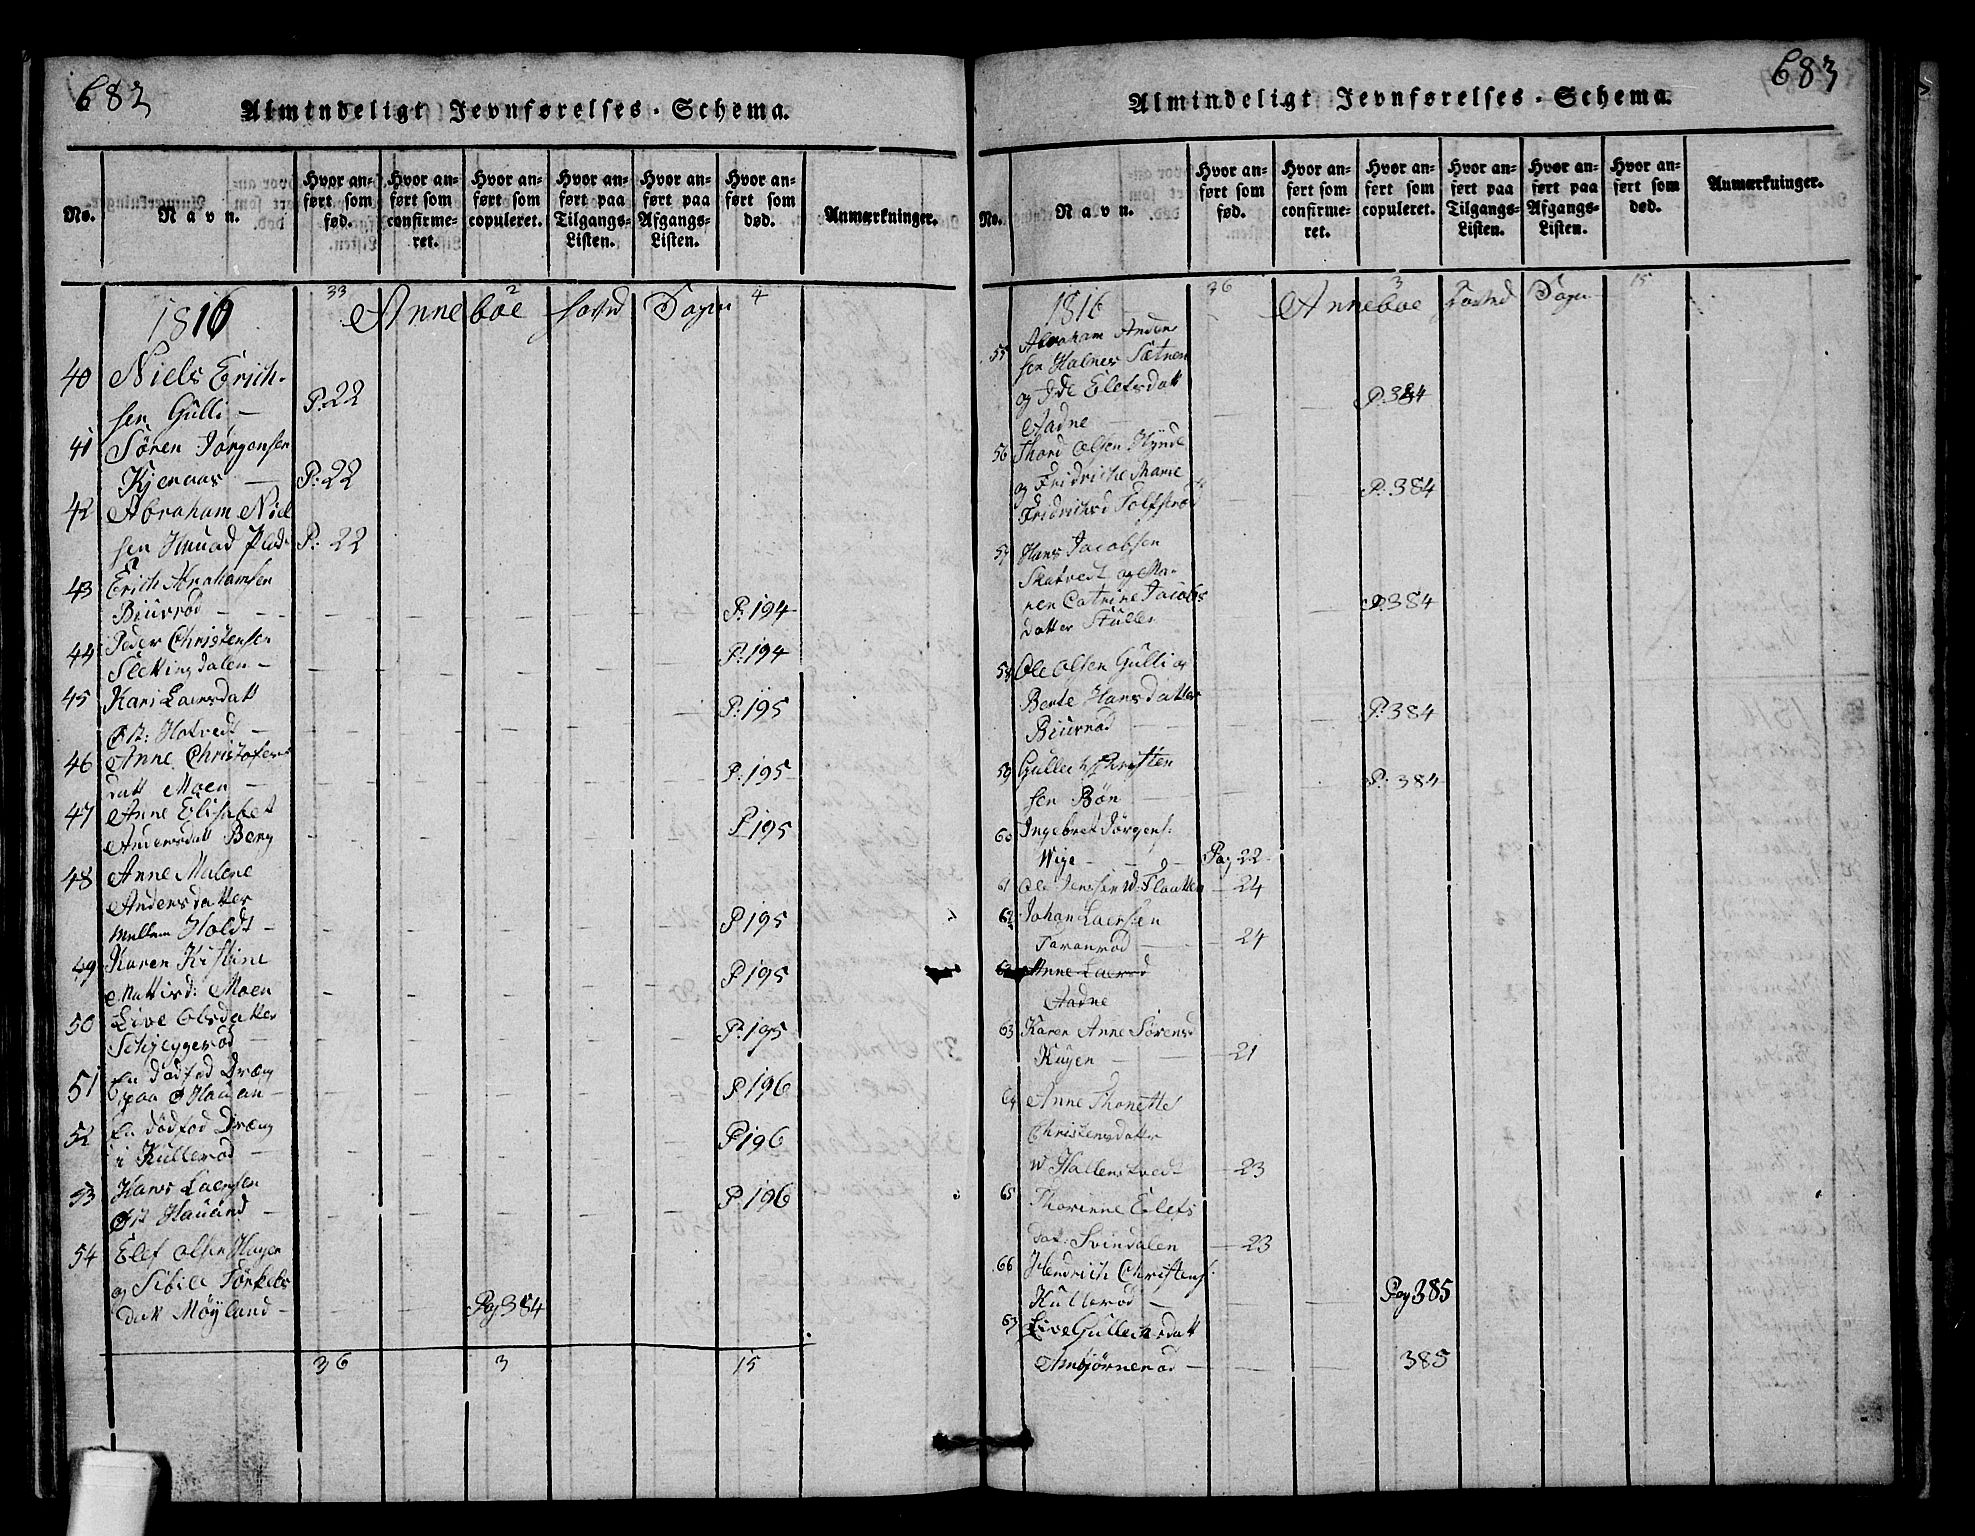 682
Almindeligt Jevnførelses-Schema.
No.
Navn.
Hvor anført som fød.
Hvor anført som confirmeret.
Hvor anført som copuleret.
Hvor anført paa Tilgangs-Listen.
Hvor anført paa Afgangs-Listen.
Hvor anført som død.
Anmærkninger.
33 2 4
1816 Anneboe Sogn
40 Niels Erich-
sen Gulli – P: 22
41 Sören Jörgensen
Kjernaas – P: 22
42 Abraham Niel
sen P: 22
43 Erich Abrahamsen
Biúrrød – P: 194
44 Peder Christensen
Slettingdalen – P: 194
45 Kari Laersdatt
Øst: Hotvedt – P: 195
46 Anne Christofers
datt Moen – P: 195
47 Anne Elisabet
Andersdatt Berg P 195
48 Anne Malene
Andersdatter
mellem Holdt – P 195
49 Karen Kistine
Mattisd: Moen P 195
50 Live Olsdatter
Schjeggerød – P 195
51 En dødfød Dræng
paa – P 196
52 En dødfød Dræng
i Kullerød – P 196
53 Hans Laersen
Øst Hauünd – P 196
54 Elef Olsen Hagen
og Sibile Törkels
datt Möyland – Pag 384
36 3 15
683
Almindeligt Jevnførelses-Schema.
No.
Navn.
Hvor anført som fød.
Hvor anført som confirmeret.
Hvor anført som copuleret.
Hvor anført paa Tilgangs-Listen.
Hvor anført paa Afgangs-Listen.
Hvor anført som død.
Anmærkninger.
36 3 15
1816 Anneboe Sogn
55 Abraham Anders
sen Holnes Sætner
og Ide Elefsdatt
Aadne P. 384
56 Thord Olsen
og Fridriche Marie
Fridrichsd P: 384
57 Hans Jacobsen
Skatvedt og Ma-
ren Catrine Jacobs
datter P 384
58 Ole Olsen Gulli og
Berte Hansdatter
Biúrrød P: 384
59 Gullech Christen
sen Bøn – P: 384
60 Ingebret Jörgens:
Wige – Pag 22
61 Ole Jenssen W: Flaatten – 24
62 Johan Laersen
Taranrød – 24
63 Anne Laersd
Aadne
63 Karen Anne Sörensd
Kúgen – 21
64 Anne Thonette
Christensdatter
W Hallenstvedt – 23
65 Thorinne Elefs
dat: Svindalen – 23
66 Hendrich Christens:
Kullerød – Pag 385
67 Live Gullechsdatt
Anbjörnerød – 385